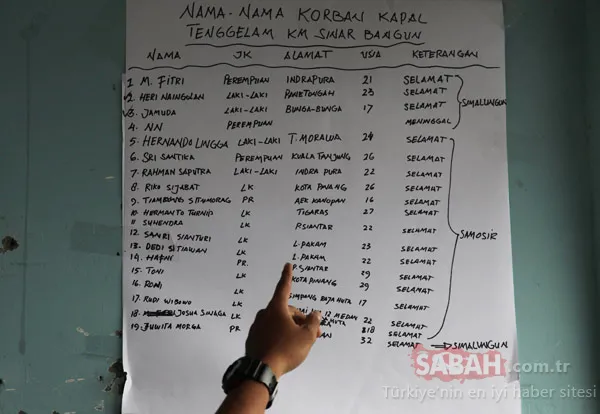 NAMA-NAMA KORBAN KAPAL
TENGGELAM KM SINAR BANGUN
NAMA JK ALAMAT USIA KETERANGAN
1 M. FITRI PEREMPUAN INDRAPURA 21 SELAMAT
2. HERI NAINGOLAN LAKI-LAKI PANETONGAH 23 SELAMAT
3. JAMUDA LAKI-LAKI BUNGA-BUNGA 17 SELAMAT
SIMALUNGUN
4. NN PEREMPUAN MENINGGAL
5. HERNANDO LINGGA LAKI-LAKI T. MORAWA 24 SELAMAT
6. SRI SANTIKA PEREMPUAN KUALA TANJUNG 26 SELAMAT
7. RAHMAN SAPUTRA LAKI-LAKI INDRA PURA 22 SELAMAT
8. RIKO SIJABAT LK KOTA PINANG 26 SELAMAT
9. TIAMBUNG SITUMORAG PR AEK KANOPAN 16 SELAMAT
10. HERMANTO TURNIP LK TIGARAS 27 SELAMAT
11 SUHENDRA LK P.SIANTAR 22 SELAMAT
12. SANRI SIANTURI LK SELAMAT
SAMOSIR
13. DEDI SITIAWAN LK L. PAKAM 23 SELAMAT
14. HAPNI PR. L. PAKAM 22 SELAMAT
15. TONI LK P. SIANTAR 29 SELAMAT
16. RONI LK KOTA PINANG 29 SELAMAT
17. RUDI WIBOWO LK SIMPANG RAJA HUTA 17 SELAMAT
18. JOSUA SINAGA LK 12 MEDAN 22 SELAMAT
19. JUWITA MORGA PR 32 SELAMAT ⇒ SIMALUNGUN
SABAH.com.tr
Türkiye'nin en iyi haber sitesi